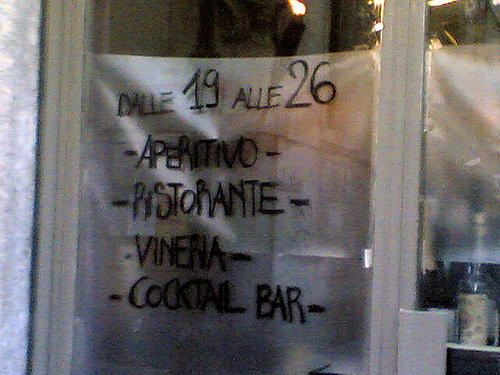 DALLE 19 ALLE 26
- APERITIVO -
- RISTORANTE -
- VINERIA -
- COCKTAIL BAR -